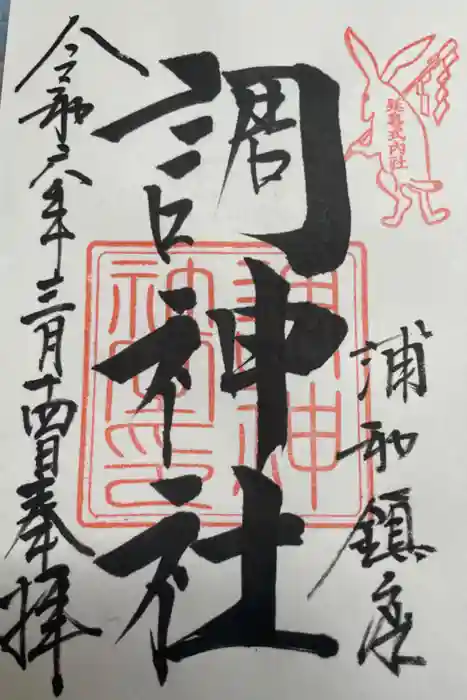 延喜式内社
浦和鎮座
調神社
令和六年三月十四日奉拝